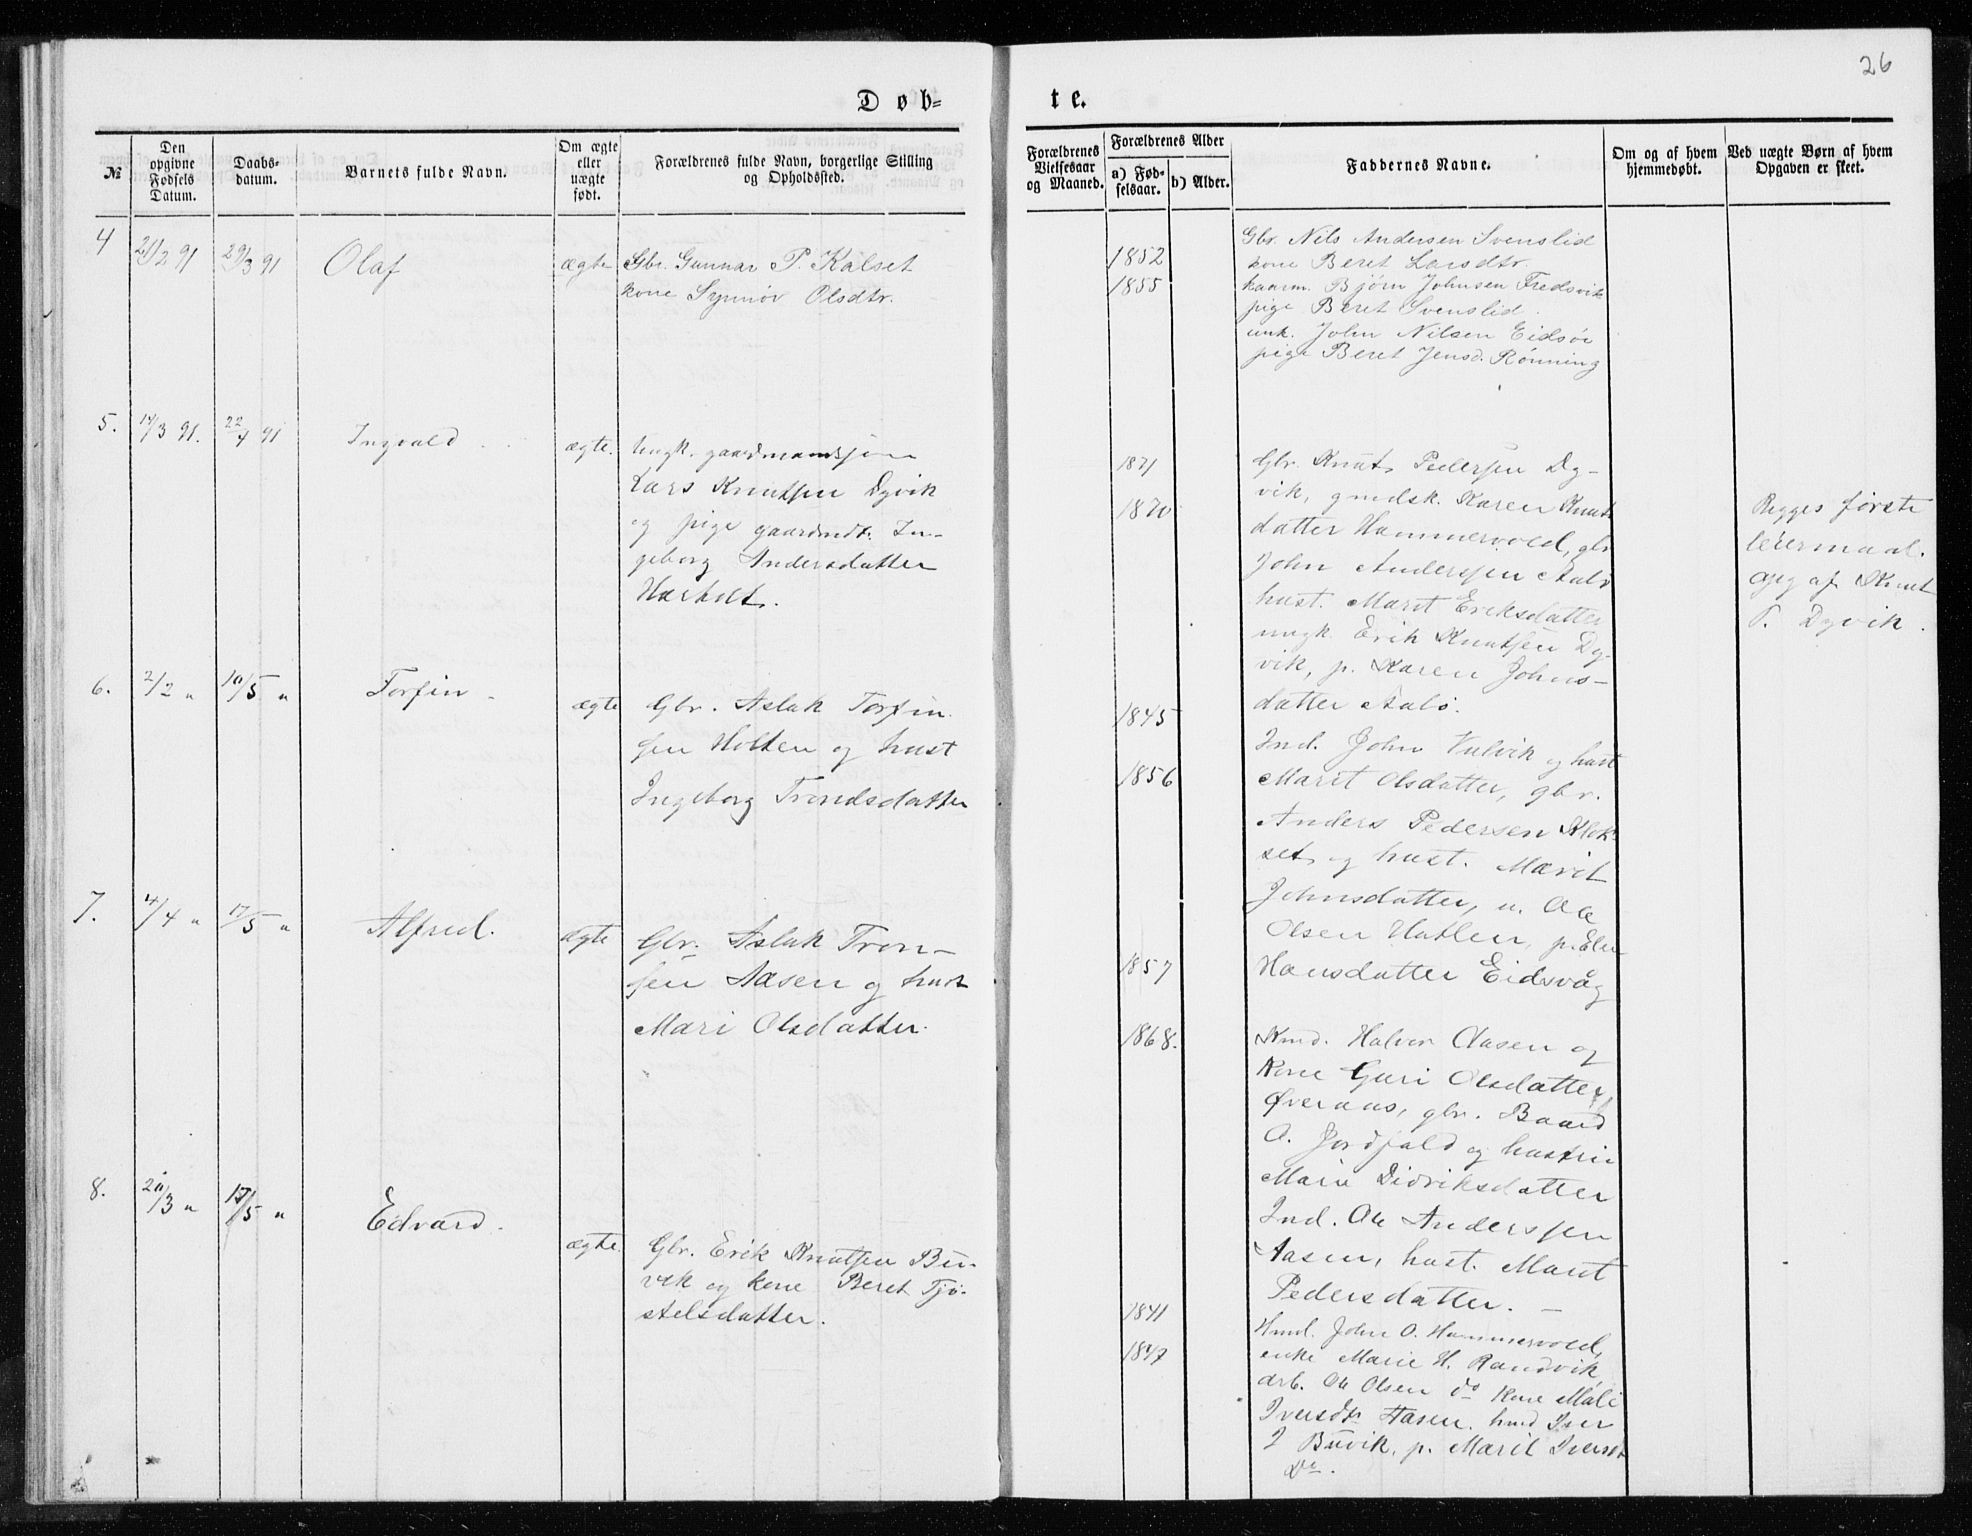 26
Døb-
te.
№
Den
opgivne
Fødsels
Datum.
Daabs-
datum.
Barnets fulde Navn.
Om ægte
eller
uægte
født.
Forældrenes fulde Navn, borgerlige Stilling
og Opholdssted.
Forældrenes
Vielsesaar
og Maaned.
Forældrenes Alder
a) Fød-
selsaar.
b) Alder.
Faddernes Navne.
Om og af hvem
hjemmedøbt.
Ved uægte Børn af hvem
Opgaven er skeet.
4
21/2 91
29/3 91
Olaf
ægte
Gbr. Gunnar P. Kalset
kone Synnøv Olsdtr.
1852
1855
Gbr. Nils Andersen Svenslid
kone Beret Larsdtr.
kaarm. Bjørn Johnsen Fredsvik
pige Beret Svenslid.
unk. John Nilsen Eidsøi
pige Beret Jensd. Rønning
5.
14/3 91.
22/4 91
Ingvald
ægte.
Ungk. gaardmandssøn
Lars Knutsen Dyvik
og pige gaardmdt. In-
geborg Andersdatter
1871
1870
Gbr. Knut Pedersen Dy-
vik, gmdsk. Karen Knuts
datter Hammervold, gbr
John Anderssen Aalø
hust. Marit Eriksdatter
ungk. Erik Knutsen Dy-
vik, p. Karen Johns-
datter Aalø.
Begges første
leiermaal.
opg af Knut
P. Dyvik.
6.
2/2 "
10/5 "
Torfin
ægte
Gbr. Aslak Torfin
sen Holten og hust
Ingeborg Trondsdatter
1845
1856
Ind. John Vulvik og hust
Marit Olsdatter, gbr.
Anders Pedersen Klok-
set og hust. Marit
Johnsdatter, u. Ole
Olsen Hatlen, p. Elen
Hansdatter Eidsvåg
7.
4/4 "
17/5 "
Alfred.
ægte
Gbr. Aslak Tron-
sen Aasen og hust
Mari Olsdatter.
1857
1868.
Kmd. Halvor Aasen og
Kone Guri Olsdatter,
Øveraas, gbr. Baard
O. Jordfald og hustru
Marie Didriksdatter
Ind. Ole Anderssen
Aasen, hust. Marit
Pedersdatter.
8.
20/3 "
17/5 "
Edvard.
ægte.
Gbr. Erik Knutsen Bu-
vik og kone Beret Tjø-
stelsdatter.
1841
1847
Hmd. John O. Hammervold,
enke Marie H. Randvik
arb. Ole Olsen do Kone Mali
Iversdtr Aasen, hmd Iver
I Buvik, p. Marit Iversdt
Do.